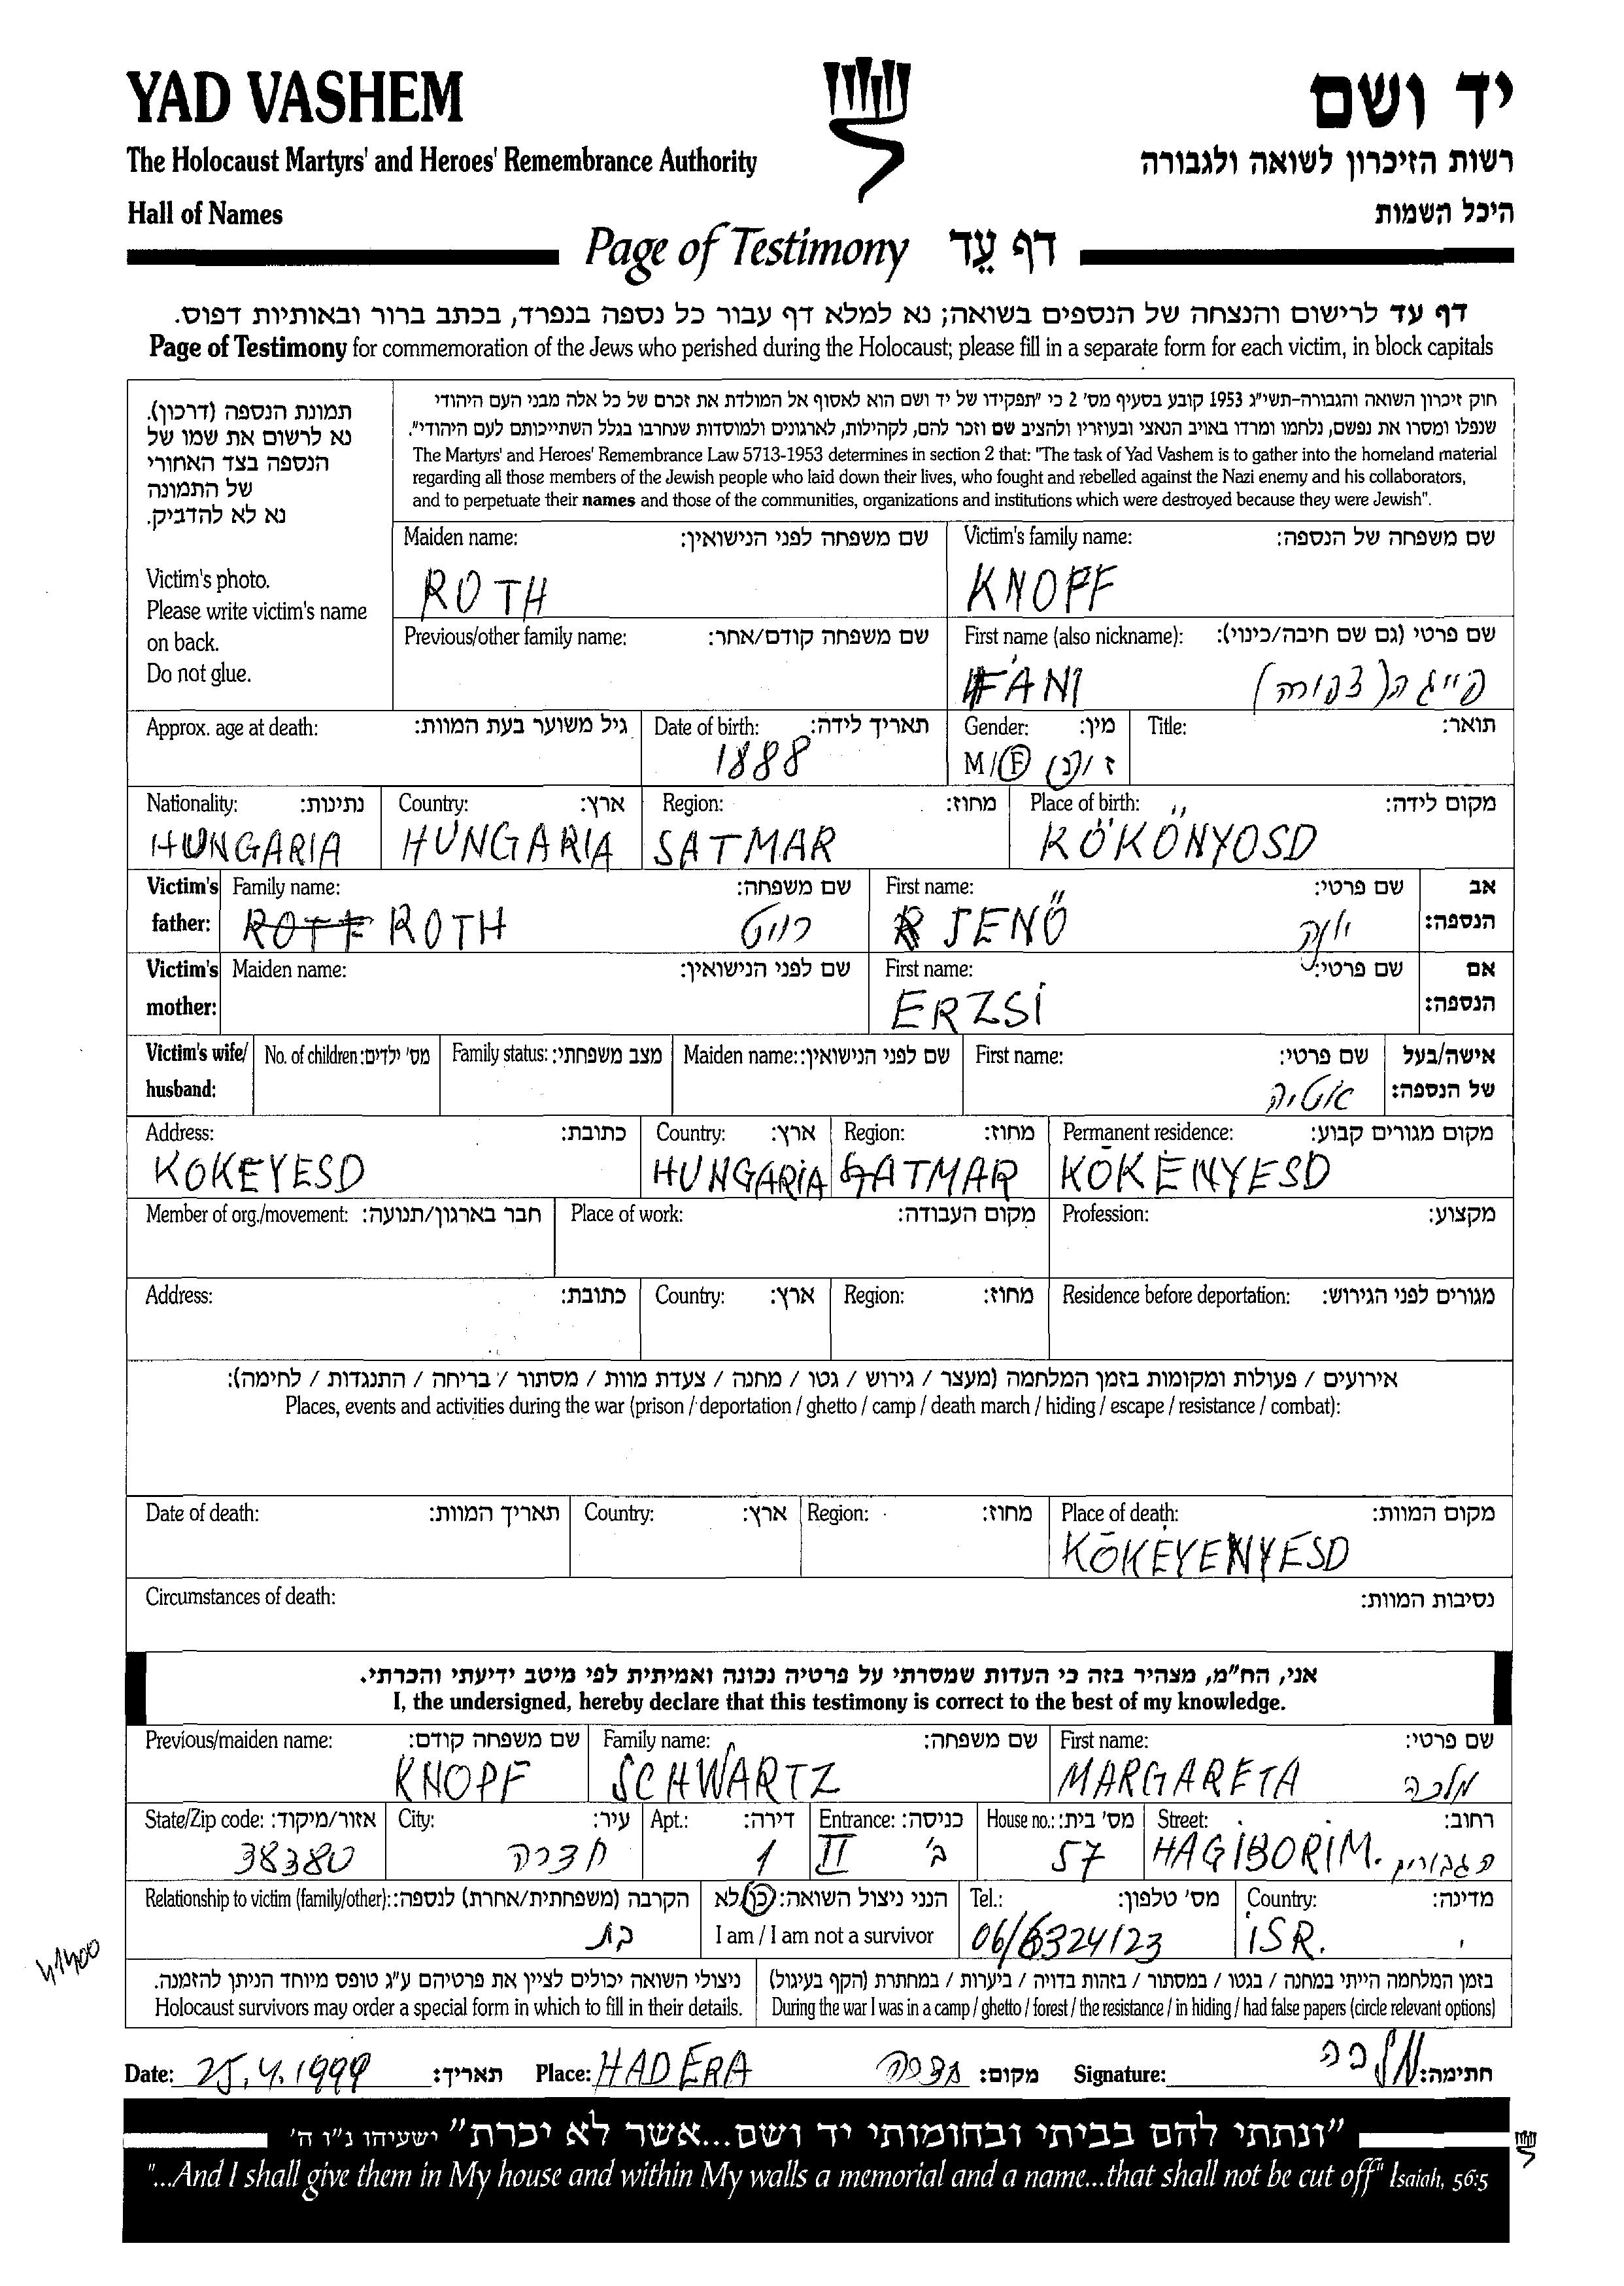 YAD VASHEM
יד ושם
The Holocaust Martyrs' and Heroes' Remembrance Authority
רשות הזיכרון לשואה ולגבורה
Hall of Names
היכל השמות
Page of Testimony דף עֵד
דף עד לרישום והנצחה של הנספים בשואה; נא למלא דף עבור כל נספה בנפרד, בכתב ברור ובאותיות דפוס.
Page of Testimony for commemoration of the Jews who perished during the Holocaust; please fill in a separate form for each victim, in block capitals
תמונת הנספה (דרכון).
נא לרשום את שמו של
הנספה בצד האחורי
של התמונה
נא לא להדביק.
Victim's photo.
Please write victim's name
on back.
Do not glue.
חוק זיכרון השואה והגבורה-תשי"ג 1953 קובע בסעיף מס' 2 כי "תפקידו של יד ושם הוא לאסוף אל המולדת את זכרם של כל אלה מבני העם היהודי
שנפלו ומסרו את נפשם, נלחמו ומרדו באויב הנאצי ובעוזריו ולהציב שם וזכר להם, לקהילות, לארגונים ולמוסדות שנחרבו בגלל השתייכותם לעם היהודי".
The Martyrs' and Heroes' Remembrance Law 5713-1953 determines in section 2 that: "The task of Yad Vashem is to gather into the homeland material
regarding all those members of the Jewish people who laid down their lives, who fought and rebelled against the Nazi enemy and his collaborators,
and to perpetuate their names and those of the communities, organizations and institutions which were destroyed because they were Jewish".
Maiden name: שם משפחה לפני הנישואין: Victim's family name: שם משפחה של הנספה:
ROTH KNOPF
Previous/other family name: שם משפחה קודם/אחר: First name (also nickname): שם פרטי (גם שם חיבה/כינוי):
FÁNI פייגה (צפורה)
Approx. age at death: גיל משוער בעת המוות: Date of birth: תאריך לידה: Gender: מין: Title: תואר:
1888 M/F ז/נ
Nationality: נתינות: Country: ארץ: Region: מחוז: Place of birth: מקום לידה:
HUNGARIA HUNGARIA SATMAR KÖKÖNYOSD
Victim's father: Family name: שם משפחה: First name: שם פרטי: אב הנספה:
ROTH רויט JENŐ יונה
Victim's mother: Maiden name: שם לפני הנישואין: First name: שם פרטי: אם הנספה:
ERZSI
Victim's wife/ husband: No. of children: מס' ילדים: Family status: מצב משפחתי: Maiden name: שם לפני הנישואין: First name: שם פרטי: אישה/בעל של הנספה:
Address: כתובת: Country: ארץ: Region: מחוז: Permanent residence: מקום מגורים קבוע:
KOKEYESD HUNGARIA SATMAR KÖKÉNYESD
Member of org./movement: חבר בארגון/תנועה: Place of work: מקום העבודה: Profession: מקצוע:
Address: כתובת: Country: ארץ: Region: מחוז: Residence before deportation: מגורים לפני הגירוש:
אירועים / פעולות ומקומות בזמן המלחמה (מעצר / גירוש / גטו / מחנה / צעדת מוות / מסתור / בריחה / התנגדות / לחימה):
Places, events and activities during the war (prison / deportation / ghetto / camp / death march / hiding / escape / resistance / combat):
Date of death: תאריך המוות: Country: ארץ: Region: מחוז: Place of death: מקום המוות:
KÖKÉYENYESD
Circumstances of death: נסיבות המוות:
אני, הח"מ, מצהיר בזה כי העדות שמסרתי על פרטיה נכונה ואמיתית לפי מיטב ידיעתי והכרתי.
I, the undersigned, hereby declare that this testimony is correct to the best of my knowledge.
Previous/maiden name: שם משפחה קודם: Family name: שם משפחה: First name: שם פרטי:
KNOPF SCHWARTZ MARGARETA מלכה
State/Zip code: אזור/מיקוד: City: עיר: Apt.: דירה: Entrance: כניסה: House no.: מס' בית: Street: רחוב:
38380 חדרה 1 II ב' 57 HAGIBORIM. הגבורים
Relationship to victim (family/other): הקרבה (משפחתית/אחרת) לנספה: הנני ניצול השואה: כן/לא Tel.: מס' טלפון: Country: מדינה:
בת I am / I am not a survivor 06/6324123 ISR.
ניצולי השואה יכולים לציין את פרטיהם ע"ג טופס מיוחד הניתן להזמנה. בזמן המלחמה הייתי במחנה / בגטו / במסתור / בזהות בדויה / ביערות / במחתרת (הקף בעיגול)
Holocaust survivors may order a special form in which to fill in their details. During the war I was in a camp / ghetto / forest / the resistance / in hiding / had false papers (circle relevant options)
Date: 25.4.1999 תאריך: Place: HADERA חדרה מקום: Signature: מלכה חתימה:
"ונתתי להם בביתי ובחומותי יד ושם...אשר לא יכרת" ישעיהו נ"ו ה'
"...And I shall give them in My house and within My walls a memorial and a name...that shall not be cut off" Isaiah, 56:5